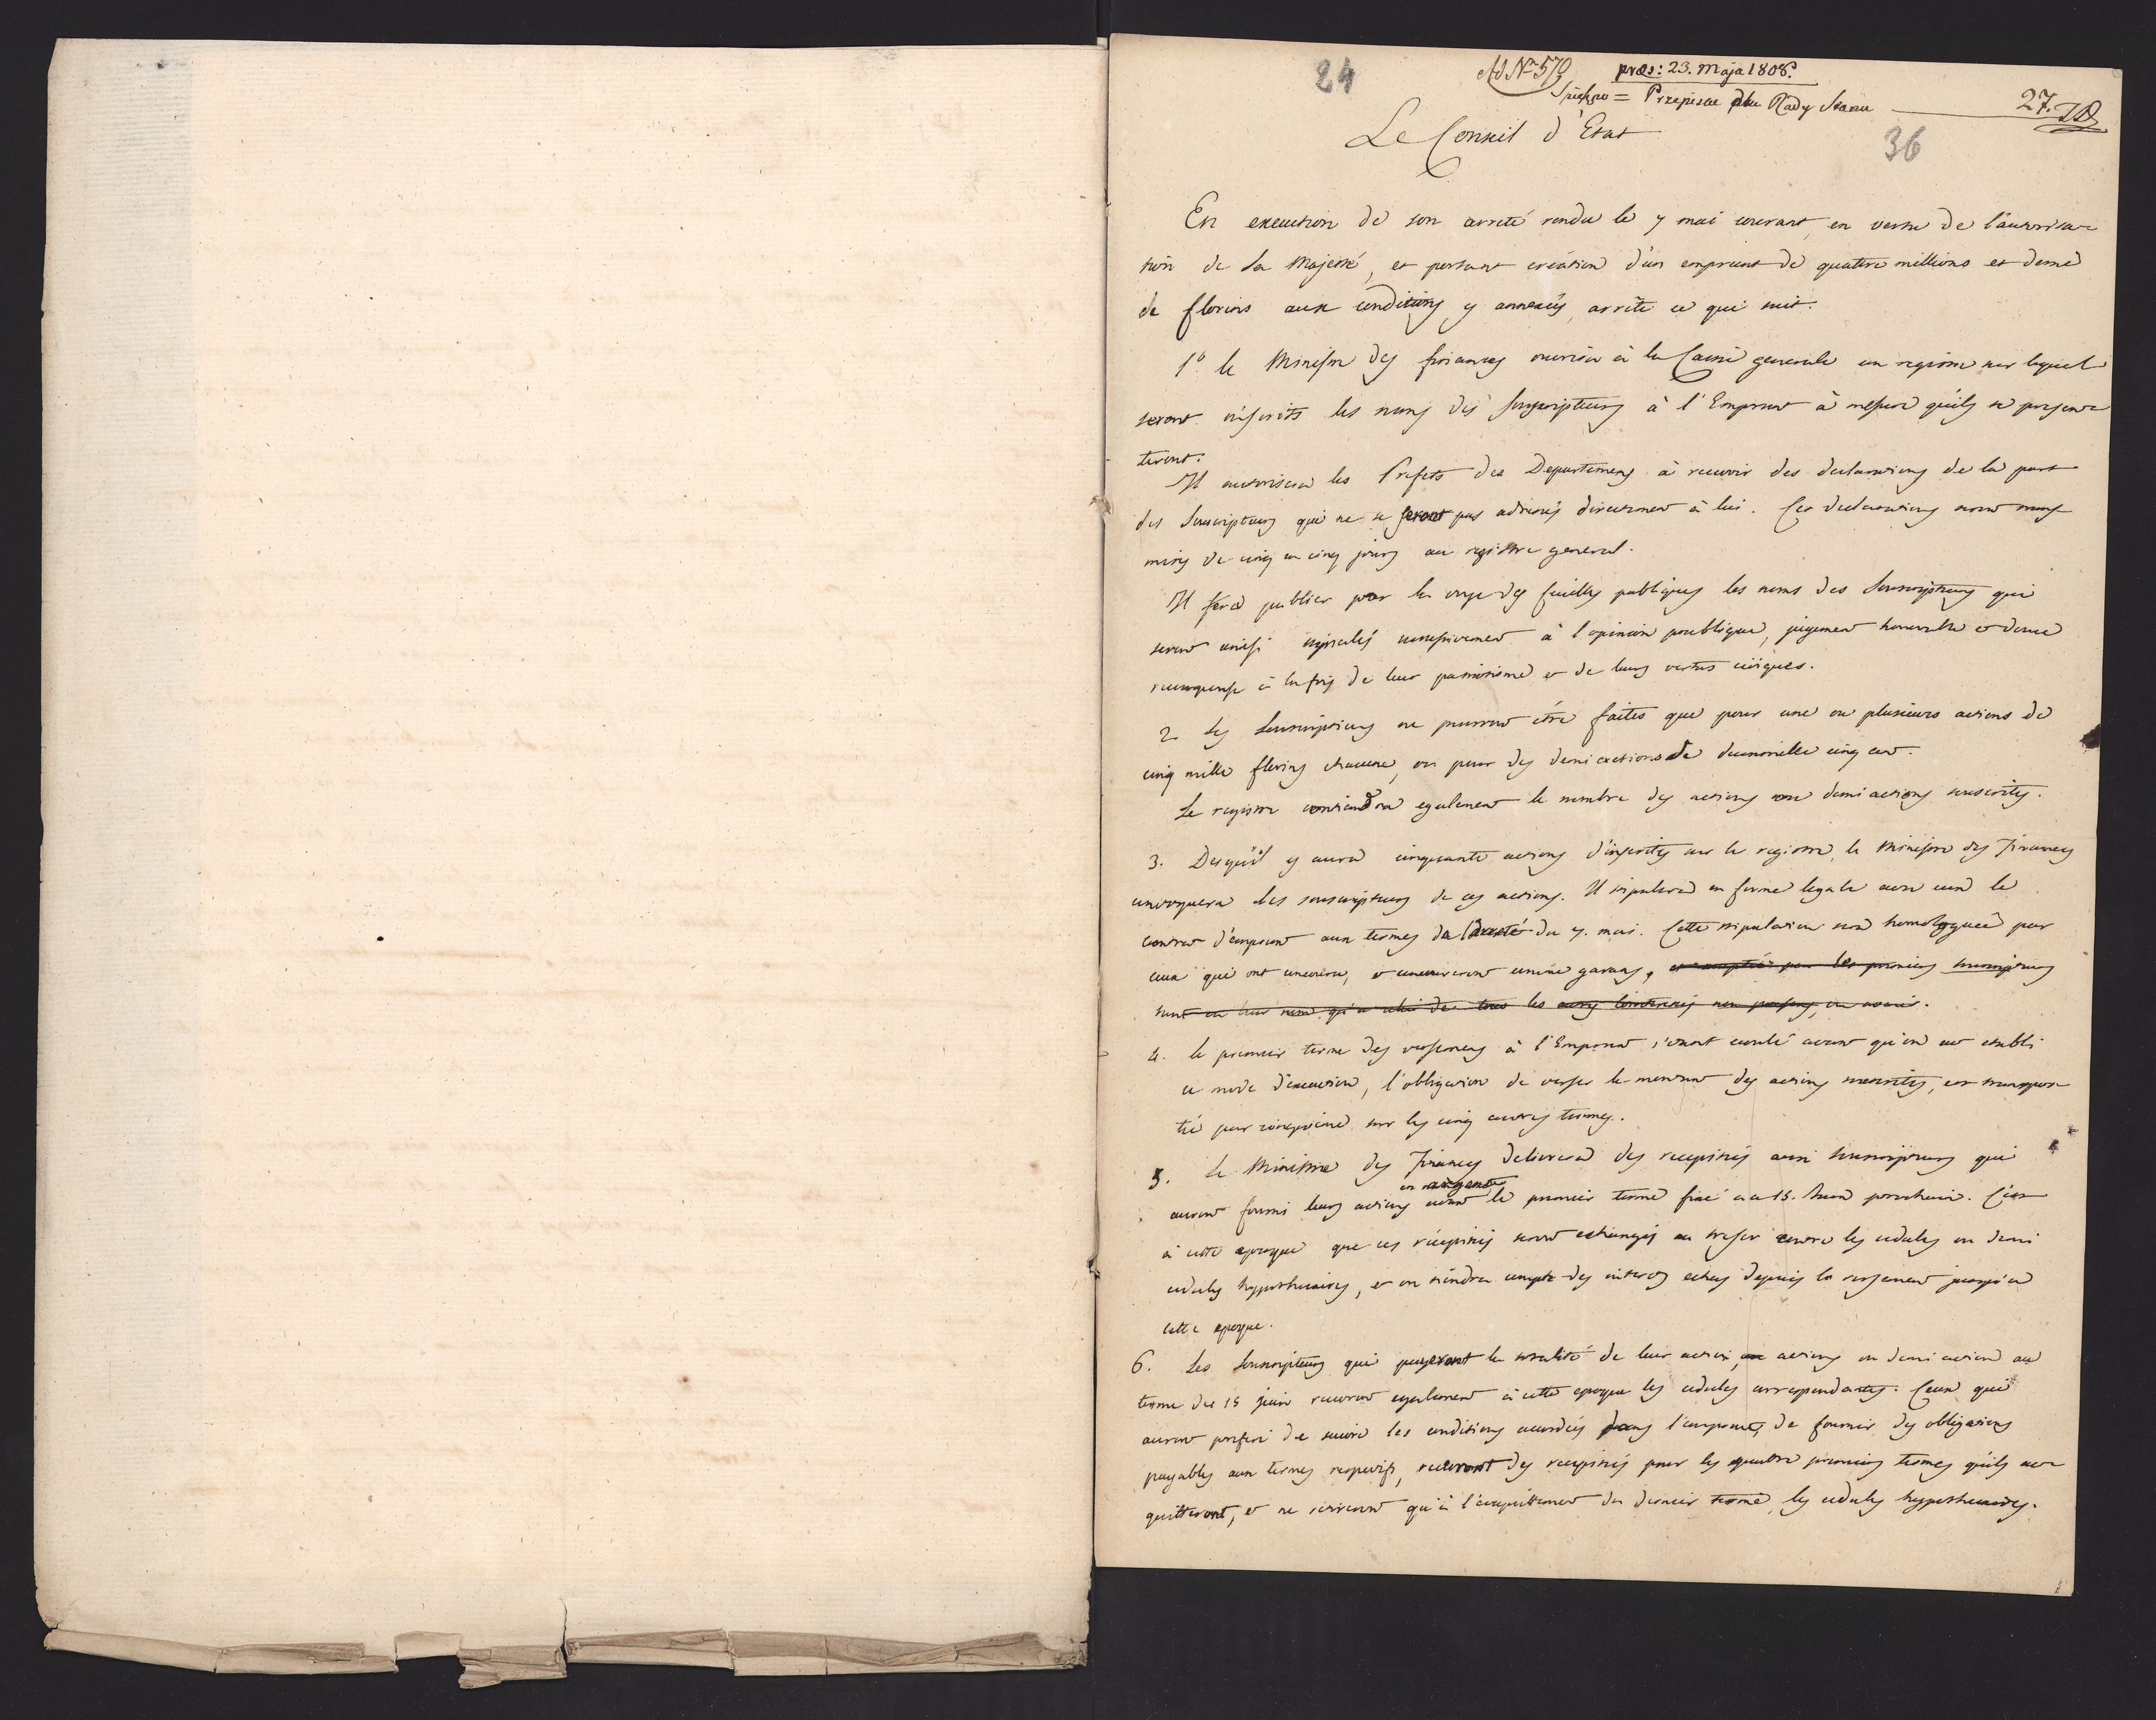 24
Ad N 570 præs: 23. Maja 1808.
Przepisać dla Rady Stanu 27.
Le Conseil d'Etat
36
En execution de son arreté rendu le 7 mai courant, en vertu de l'autorisa-
tion de Sa Majesté, et portant création d'un emprunt de quattre millions et demi
de florins aux conditions y annexées, arrête ce qui suit.
1º le Ministre des finances ouvrira à la Caisse generale un registre sur lequel
seront inscrits les noms des souscripteurs à l'Emprunt à mesure qu'ils se presen-
teront.
Il autorisera les Prefets des Departemens à recevoir des declarations de la part
des Souscripteurs qui ne se seront pas adressés directement à lui. Ces declarations seront trans-
mises de cinq en cinq jours au registre general.
Il fera publier par la voye des feuilles publiques les noms des Souscripteurs qui
seront ainsi signalés successivement à l'opinion publique, jugement honorable et douce
recompense à la fois de leur patriotisme et de leurs vertus civiques.
2. Les Souscriptions ne pourront être faites que pour une ou plusieurs actions de
cinq mille florins chacune, ou pour des demi actions de deux mille cinq cent.
Le registre contiendra egalement le nombre des actions ou demi actions souscrites.
3. Dès qu'il y aura cinquante actions d'inscrites sur le registre, le Ministre des Finances
convoquera les souscripteurs de ces actions. Il stipulera en forme legale avec eux le
contrat d'emprunt aux termes de l'arreté du 7. mai. Cette stipulation sera homologuée par
ceux qui ont concouru, et concourreront comme garans, et acceptée par les premiers souscripteurs
tant en leur nom qu'à celui de tous les autres non presens, ou à venir.
4. le premier terme des versemens à l'Emprunt s'etant ecoulé avant qu'on eut etabli
ce mode d'execution, l'obligation de verser le montant des actions souscrites, est transpor-
tée par cinquieme sur les cinq autres termes.
5. Le Ministre des Finances delivrera des recepissés aux souscripteurs qui
en argent
auront fourni leurs actions avant le premier terme fixé au 15. Juin prochain. C'est
à cette epoque que ces récepissés seront echangés au tresor contre les cedules ou demi
cedules hypothecaires, et on tiendra compte des interets echus depuis le versement jusqu'à
cette epoque.
6. Les Souscripteurs qui payeront la totalité de leur action, ou actions ou demi action au
terme du 15 juin recevront egalement à cette epoque les cedules correspondantes. Ceux qui
auront preferé de suivre les conditions accordées dans l'emprunt, de fournir des obligations
payables aux termes respectifs, recevront des recepissés pour les quattre premiers termes qu'ils ac-
quitteront, et ne recevront qu'à l'acquittement du dernier terme, les cedules hypothecaires.